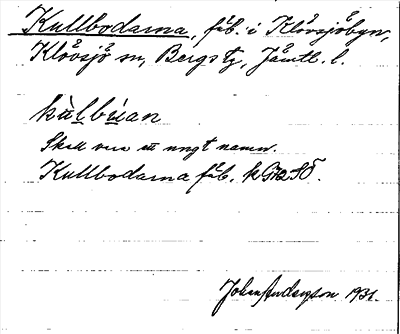 Kullbodarna, fäb. i Klövsjöbyn,
Klövsjö sn, Bergs tg, Jämtl. l.
kùlbùan
Skall vara ett ungt namn.
Kullbodarna fäb. k
Johan Anderzson 1931.